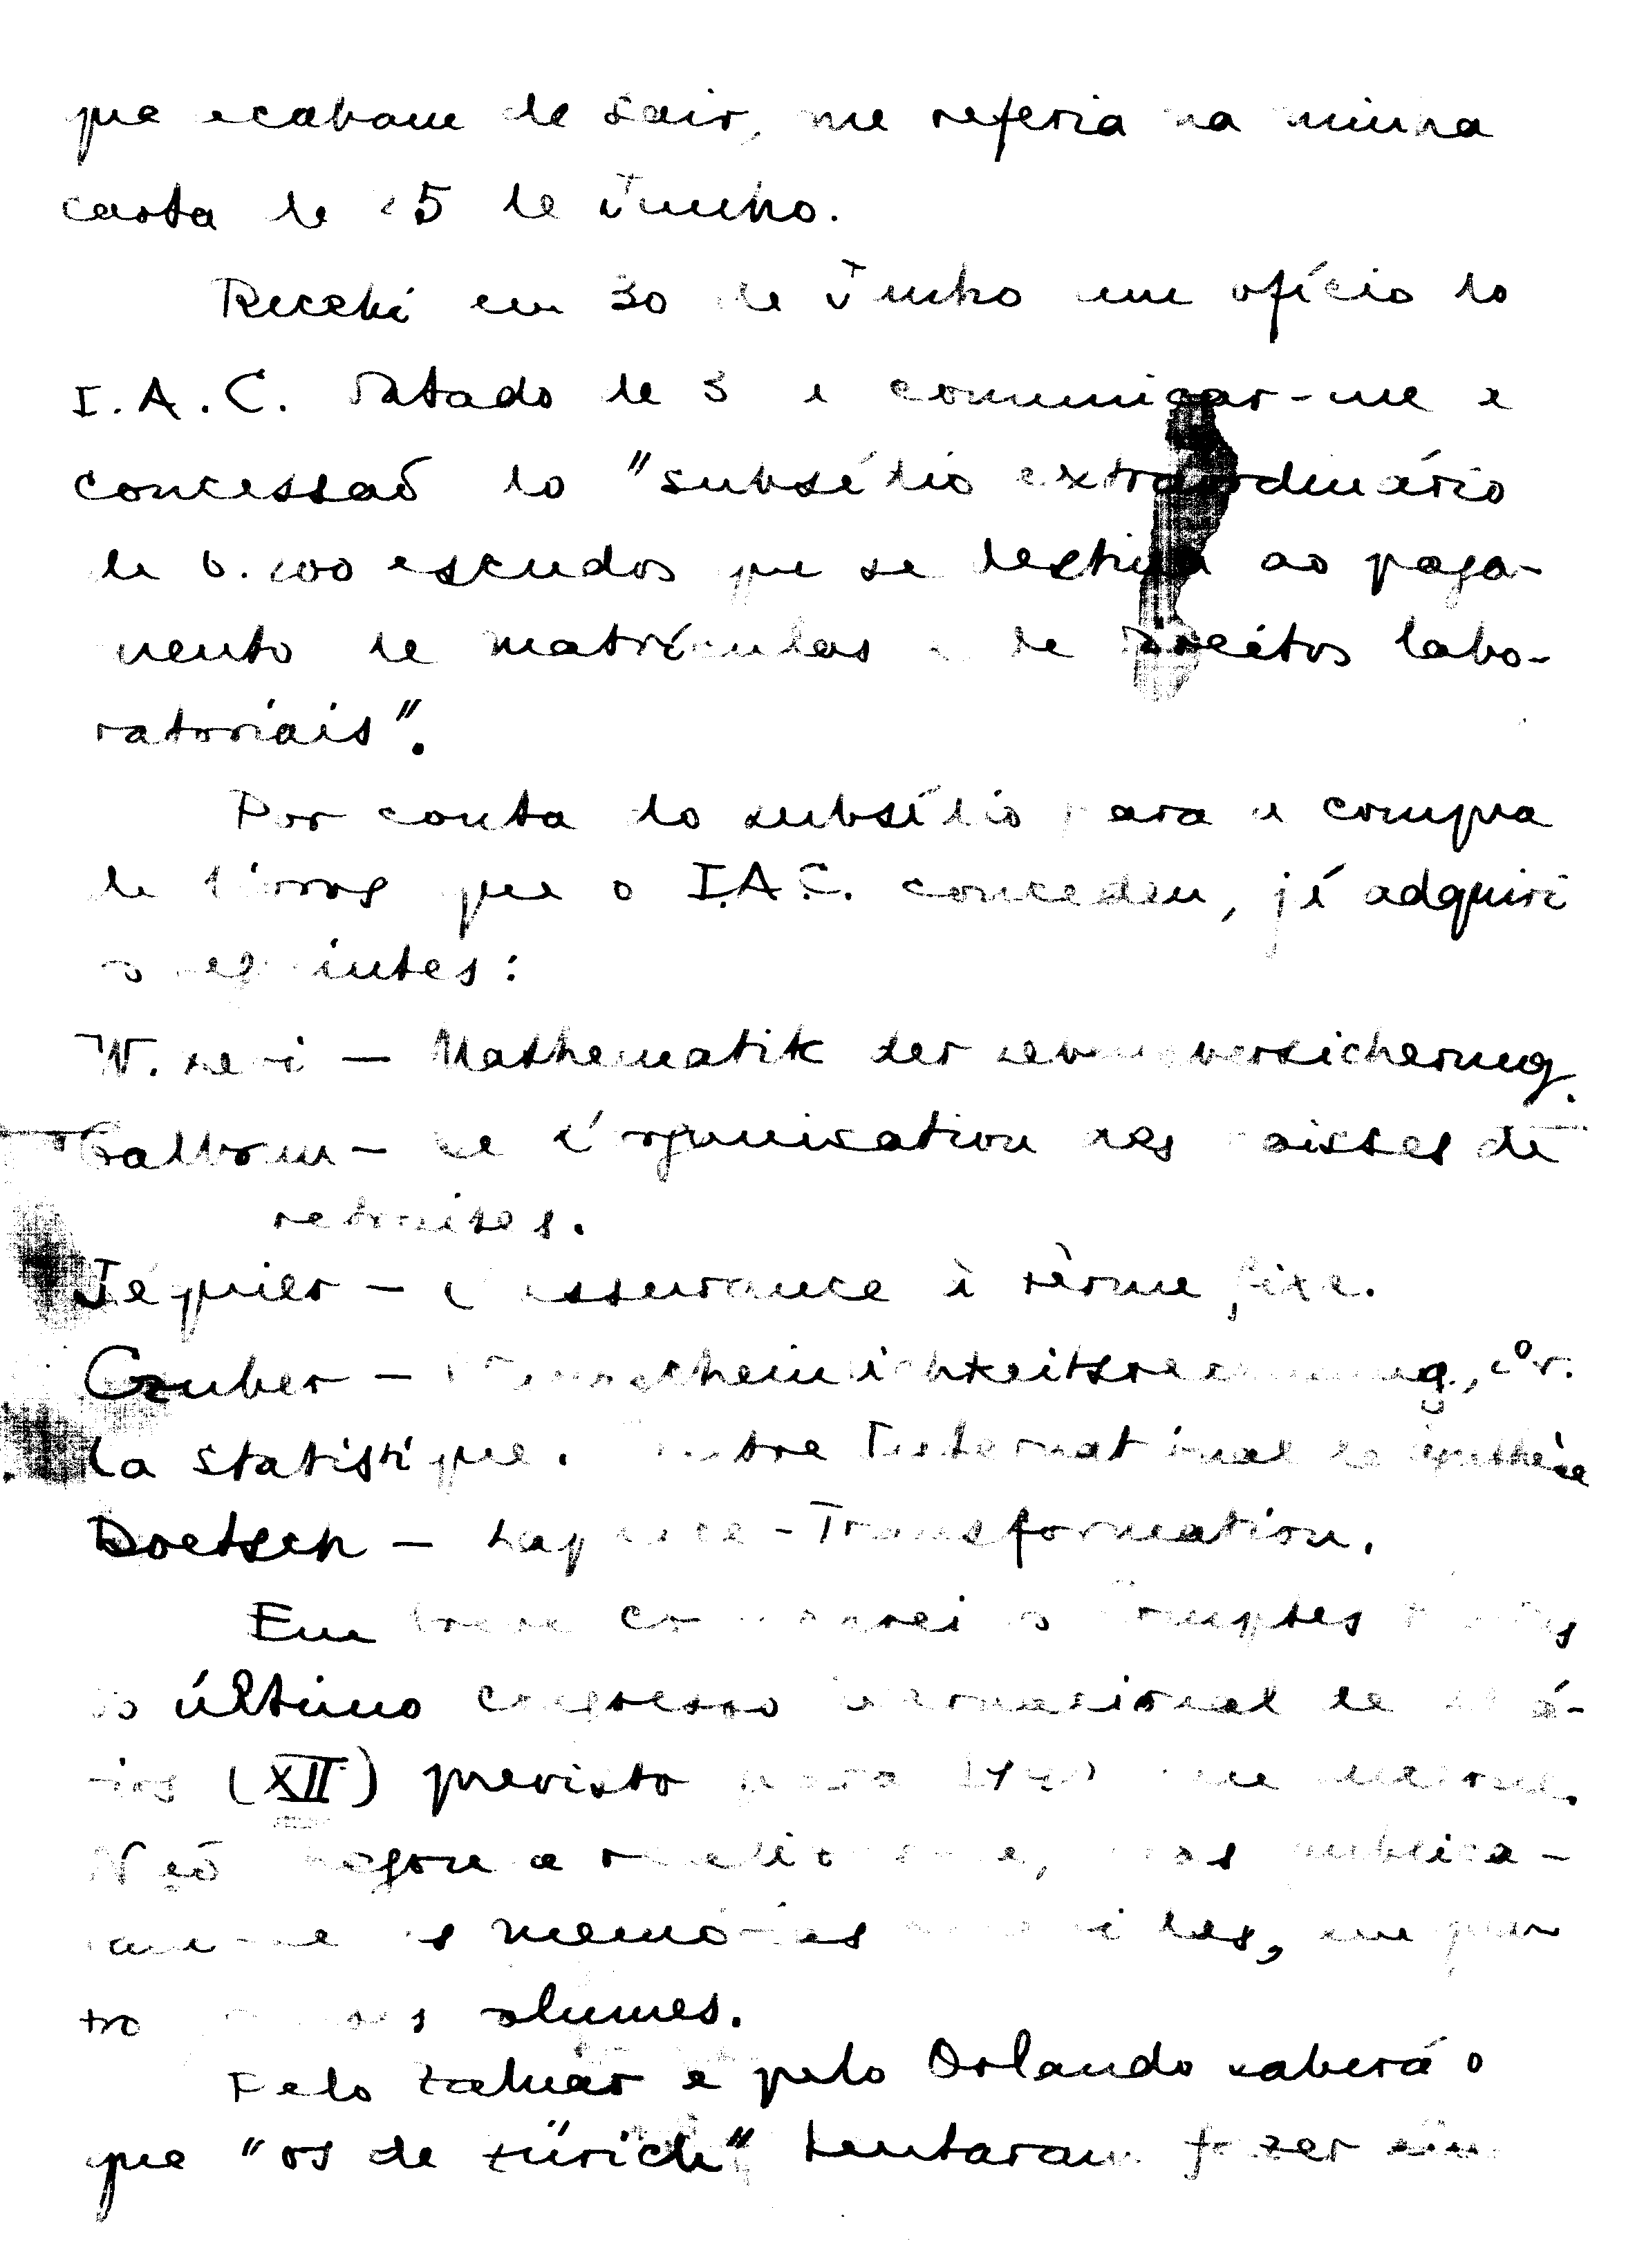 que acabam de sair, me referia na minha
carta de 15 de Junho.
Recebi em 30 de Junho um ofício do
I.A.C. datado de 3 a comunicar-me a
concessaõ do "subsídio extraordinário
de 6.000 escudos que se destina ao paga-
mento de matrículas e de direitos labo-
ratoriais".
Por conta do subsídio para a compra
de livros que o I.A.C. concedeu, já adquiri
os seguintes:
W. – Mathematik der Lebensversicherung.
– De l'organisation des caisses de
retraites.
Jéquier – L'assurance à terme fixe.
Czuber – Wahrscheinlichkeitsrechnung, v.
La statistique. Centre International de synthèse
Doetsch – Laplace-Transformation.
Em breve comprarei os Comptes Rendus
do último congresso internacional de actuá-
rios (XII) previsto para em
Naõ a mas publica-
ram-se as memórias em qua
tro volumes.
Pelo Zaluar e pelo Orlando saberá o
que "os de Zürich" tentaram fazer em